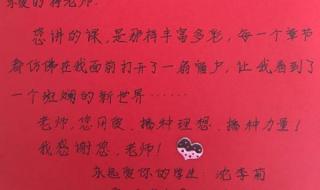 亲爱的蒋老师:
您讲的课,是那样丰富多彩,每一个章节
都仿佛在我面前打开了一扇窗户,让我看到了
一个斑斓的新世界……
老师,您用爱,播种理想、播种力量!
我感谢您,老师!
永远爱你的学生 沈李菊